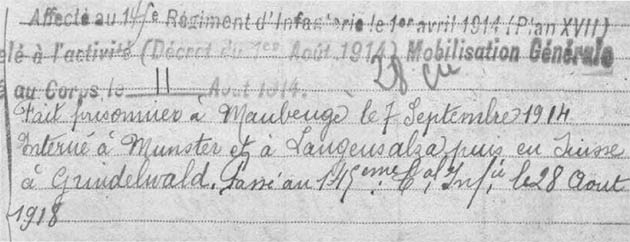 Affecté au 145e Régiment d'Infanterie le 1er avril 1914 (Plan XVII)
elé à l'activité (Décret du 1er Août 1914) Mobilisation Générale
au Corps le 11 Août 1914.
Fait prisonnier à Maubeuge le 7 Septembre 1914
Interné à Munster et à Langensalza puis en Suisse
à Grindelwald. Passé au 145eme Bat. Inf.ie le 28 Aout
1918